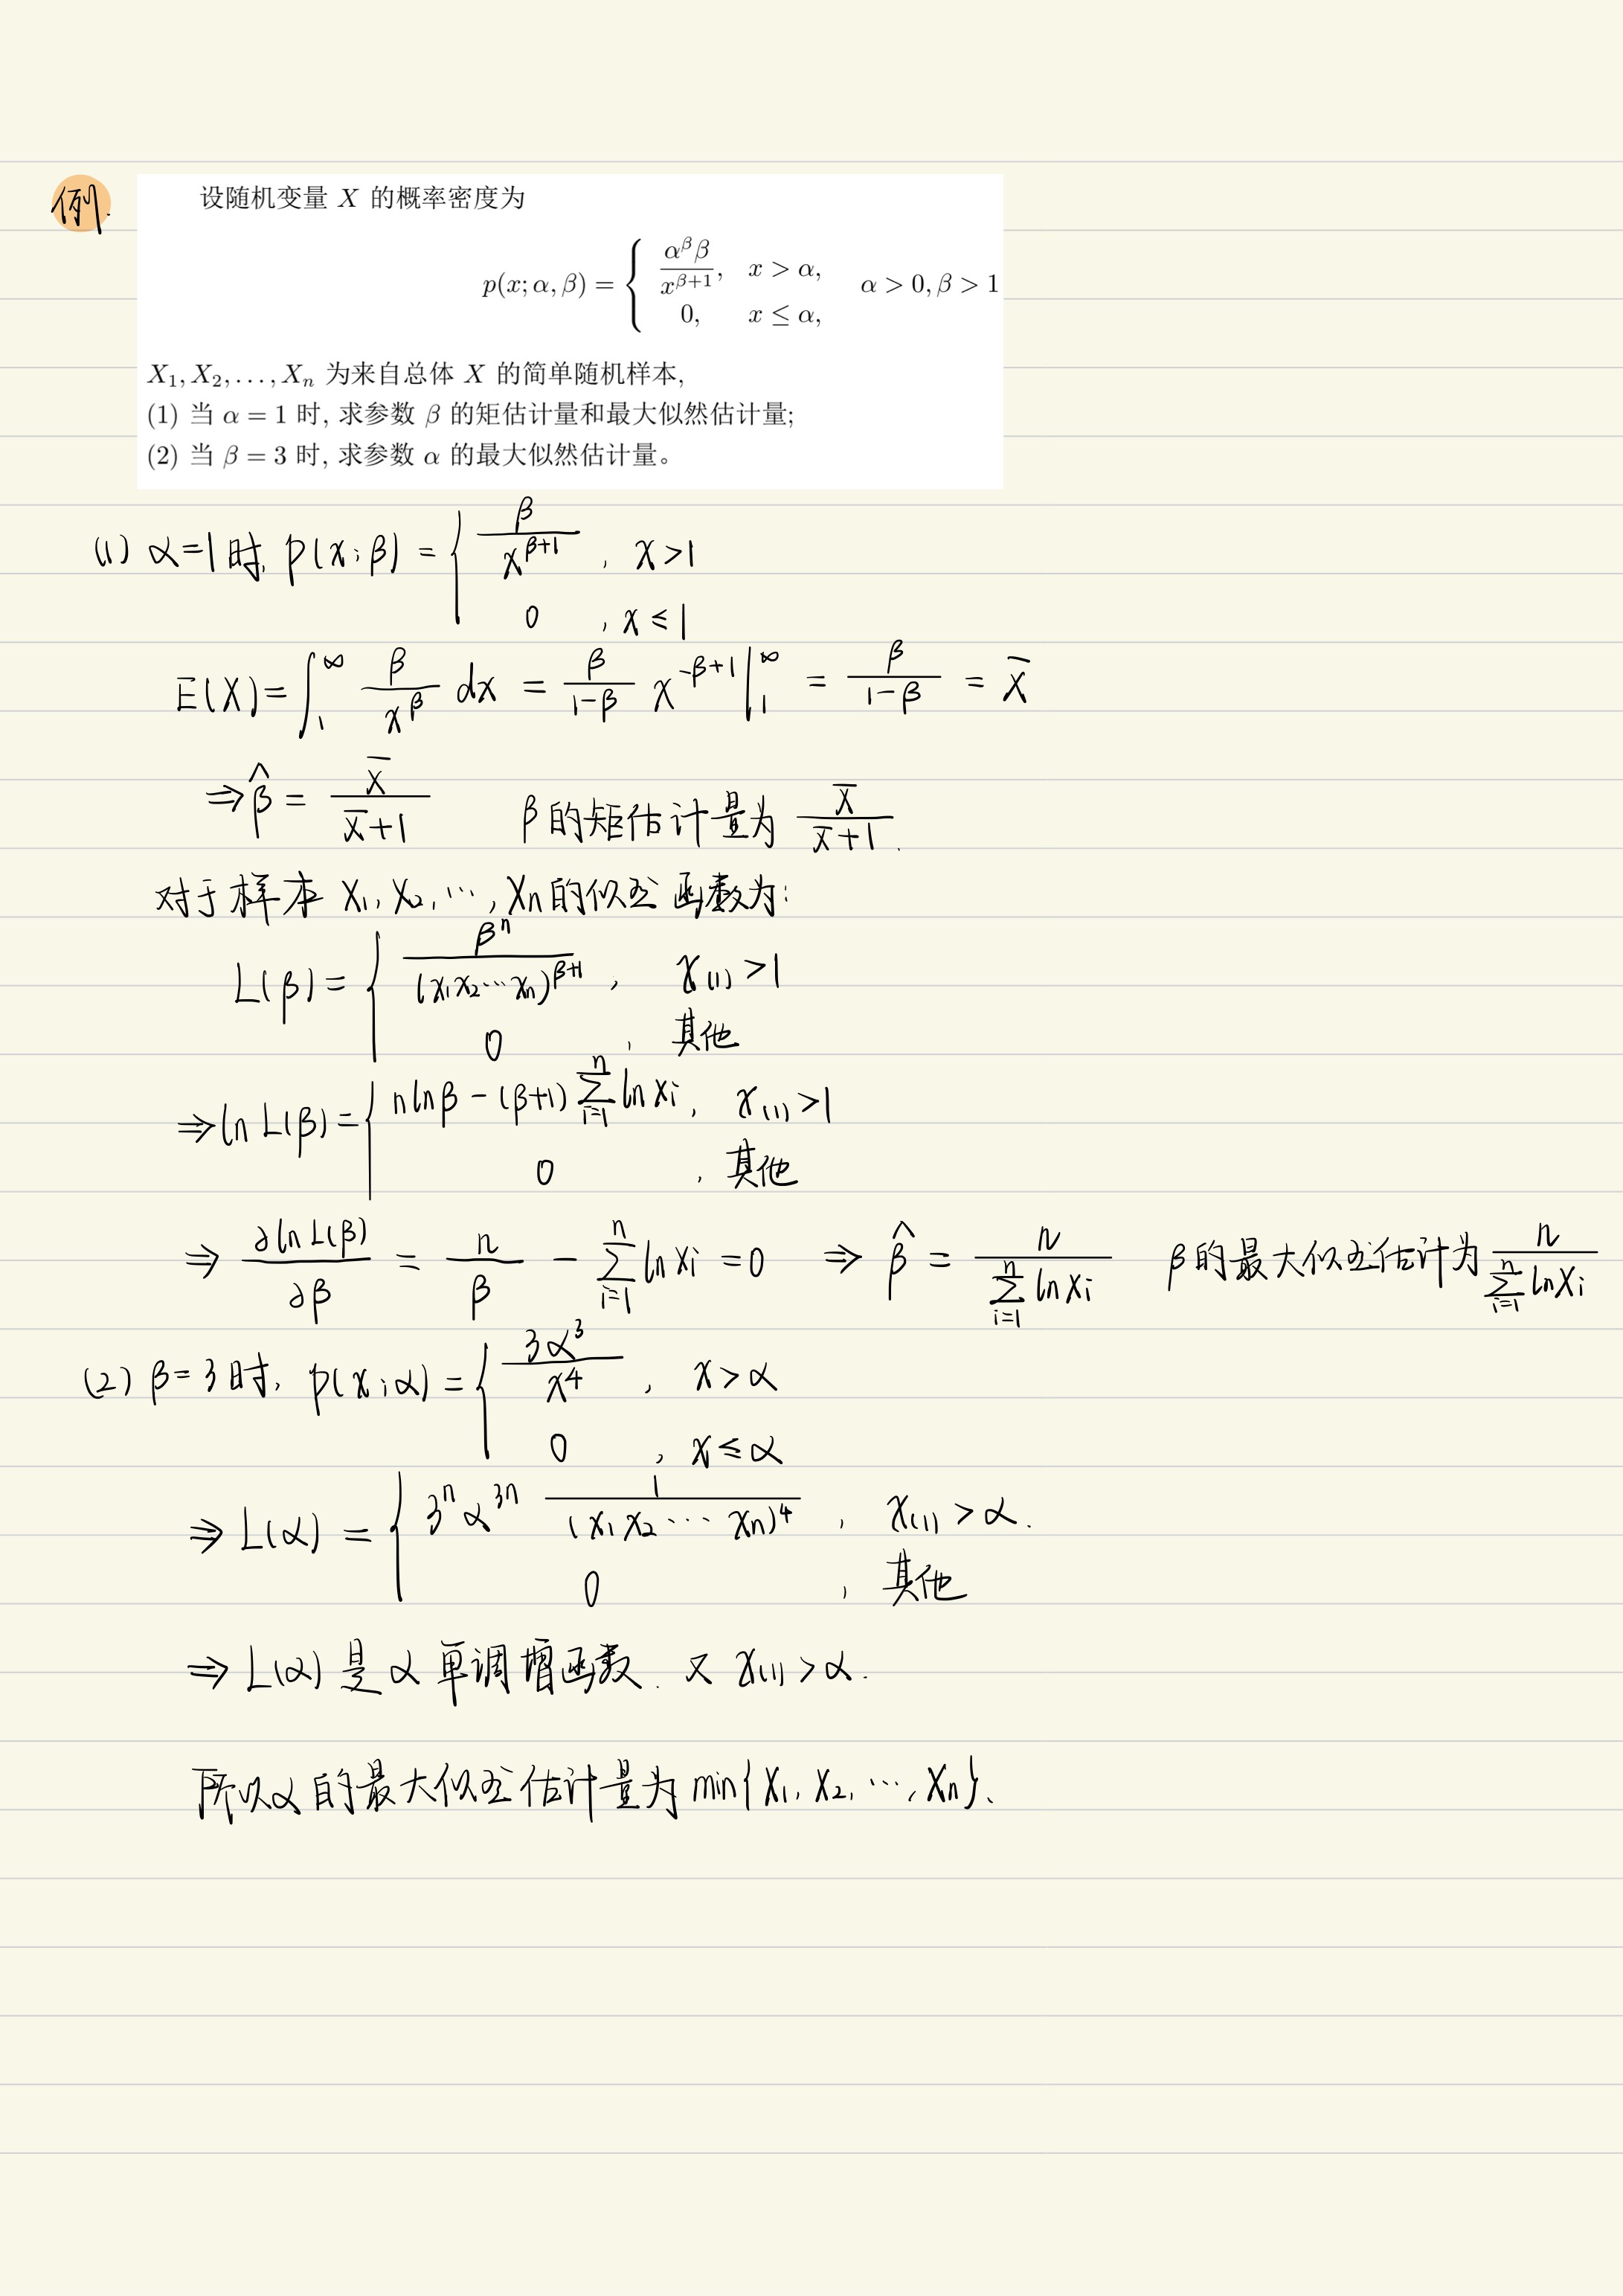 例.
设随机变量 X 的概率密度为
p(x; α, β) = { α^β β / x^{β+1}, x > α, 0, x ≤ α, α > 0, β > 1
X₁, X₂, …, Xₙ 为来自总体 X 的简单随机样本,
(1) 当 α = 1 时, 求参数 β 的矩估计量和最大似然估计量;
(2) 当 β = 3 时, 求参数 α 的最大似然估计量。
(1) α=1时, p(x;β) = { β / x^{β+1}, x>1
0, x≤1
E(X) = ∫₁^∞ β / x^β dx = β/(1-β) x^{-β+1} |₁^∞ = β/(1-β) = X̄
⇒ β̂ = X̄/(X̄+1) β的矩估计量为 X̄/(X̄+1).
对于样本 X₁, X₂, …, Xₙ的似然函数为:
L(β) = { βⁿ / (x₁x₂…xₙ)^{β+1}, x₍₁₎>1
0, 其他
⇒ ln L(β) = { n ln β - (β+1) Σ_{i=1}^{n} ln xᵢ, x₍₁₎>1
0, 其他
⇒ ∂ln L(β)/∂β = n/β - Σ_{i=1}^{n} ln xᵢ = 0 ⇒ β̂ = n / Σ_{i=1}^{n} ln Xᵢ β的最大似然估计为 n / Σ_{i=1}^{n} ln Xᵢ
(2) β=3时, p(x;α) = { 3α³ / x⁴, x>α
0, x≤α
⇒ L(α) = { 3ⁿ α^{3n} 1 / (x₁x₂…xₙ)⁴, x₍₁₎>α.
0, 其他
⇒ L(α) 是 α 单调增函数. 又 x₍₁₎>α.
所以α的最大似然估计量为 min{X₁, X₂, …, Xₙ}.